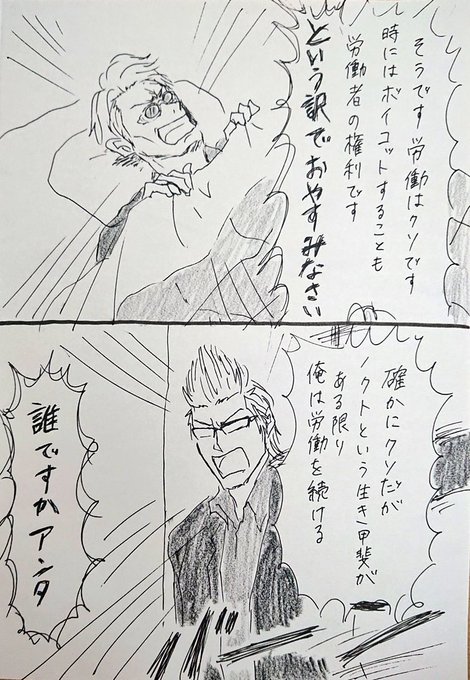 そうです労働はクソです
時にはボイコットすることも
労働者の権利です
という訳でおやすみなさい
確かにクソだが
ノクトという生き甲斐が
ある限り
俺は労働を続ける
誰ですかアンタ